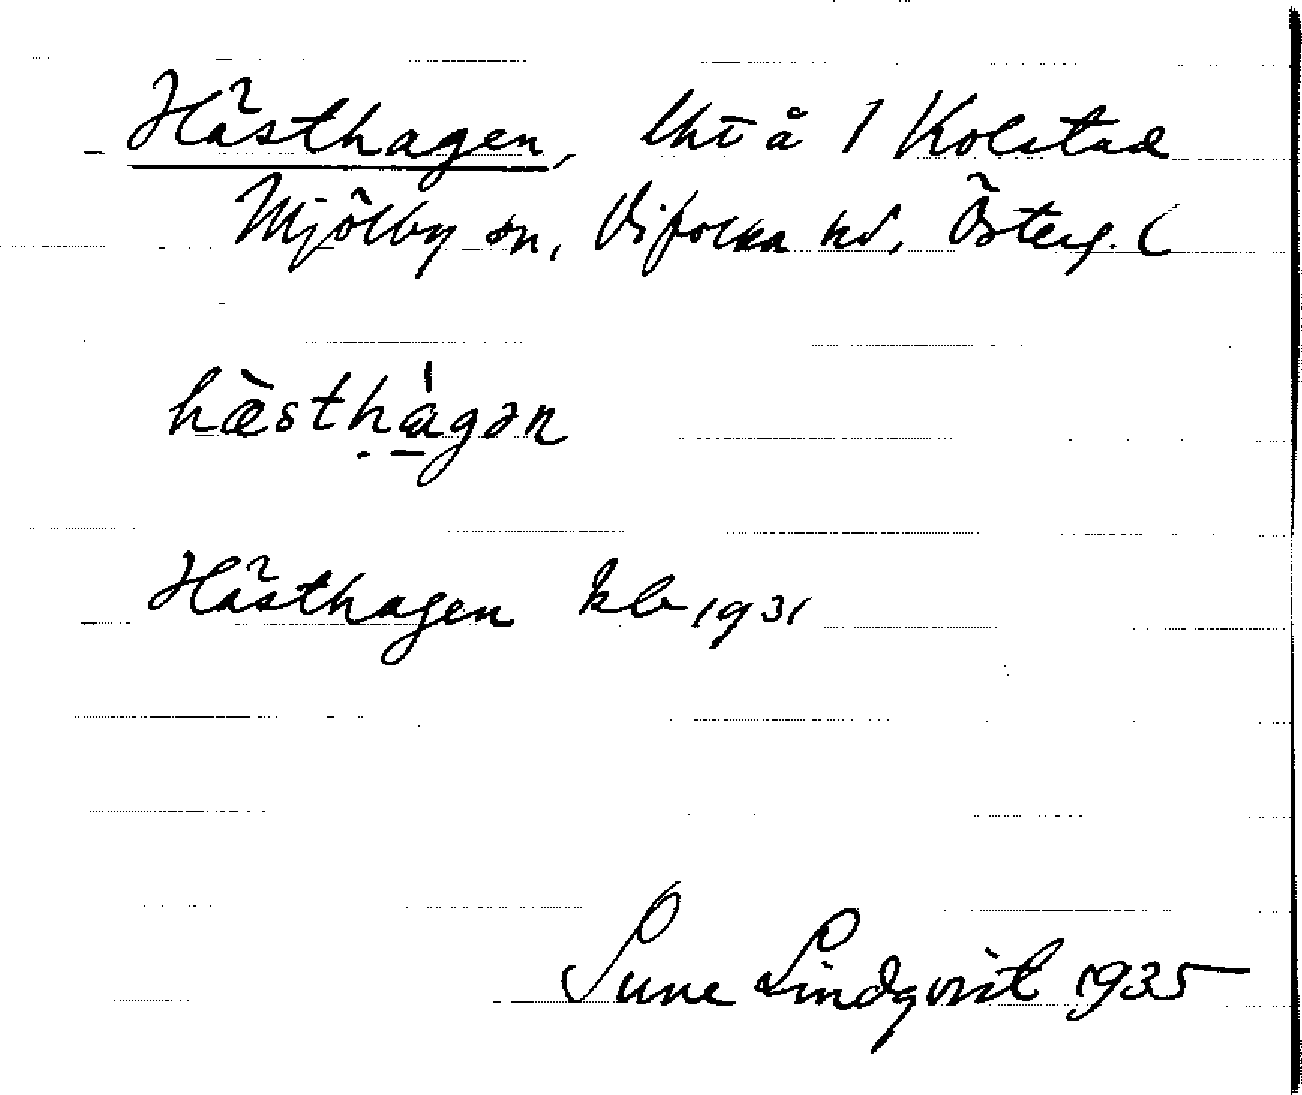 Hästhagen, lht å 1 Kolstad
Mjölby sn, Vifolka hd, Österg. l
hæ̀sthàgən
Hästhagen kb 1931
Sune Lindqvist 1935